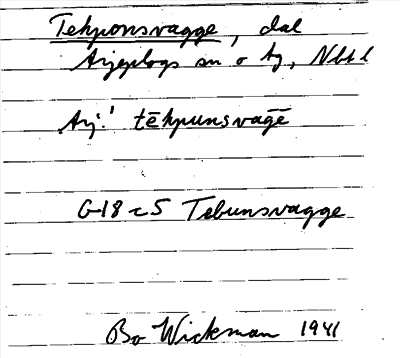 Tehponsvagge, dal
Arjeplogs sn o tg, Nbt l
Arj.! tēhpunsvaḡē
G18 c5 Tebunsvagge
Bo Wickman 1941